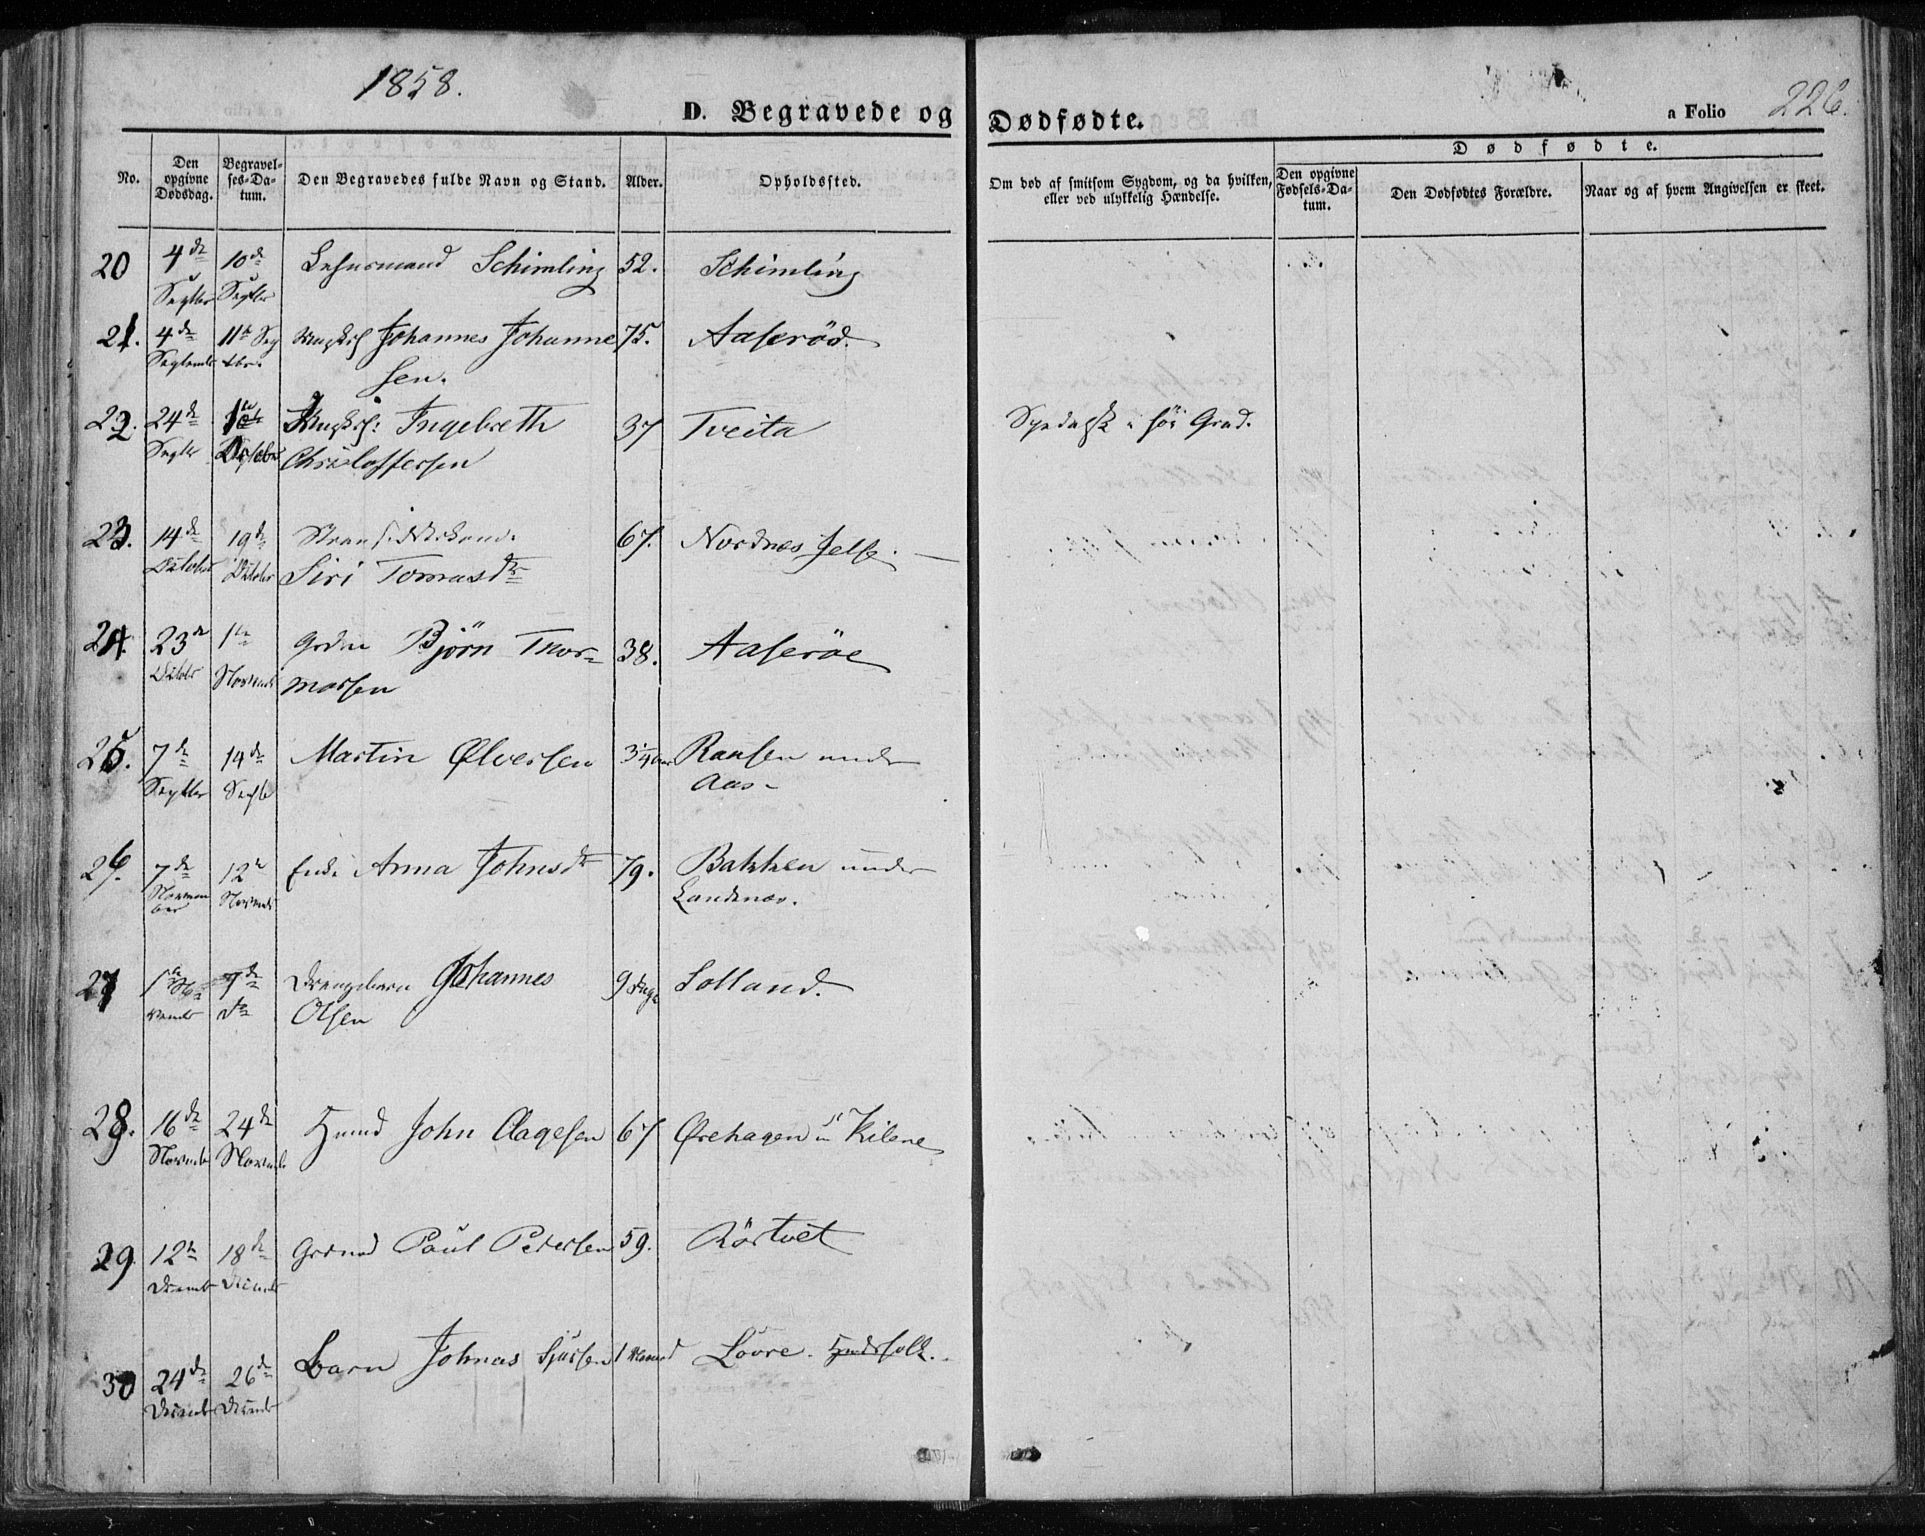 1858.
D. Begravede og Dødfødte.
a Folio 226.
No.
Den opgivne Dødsdag.
Begravelses-Datum.
Den Begravedes fulde Navn og Stand.
Alder.
Opholdssted.
Om død af smitsom Sygdom, og da hvilken, eller ved ulykkelig Hændelse.
Dødfødte.
Den opgivne Fødsels-Datum.
Den Dødfødtes Forældre.
Naar og af hvem Angivelsen er skeet.
20 4de Septbr 10de Septbr Lehnsmand Schimling 52. Schimling
21. 4de Septembr 11te Septbr. Johannes Johannesen. 75. Aaserød.
22. 24de Septbr 1ste Ingebreth Christoffersen 37 Tveita Spedalsk i høi Grad.
23. 14de Octobr 19de Octobr Siri Tomasdtr 67. Nordnes Jelse.
24. 23de Octobr 1ste Novembr Grdm Björn Thormorsen 38. Aaseröe
25. 7de Septbr 14de Septbr Martin Ølversen 3¼ Aar Rønsen under Aas
26. 7de November 12te Novembr Enke Anna Johnsdtr 79. Bakken under Landsnæs.
27 1ste November 7de do Drengebarn Johannes Olsen 9 Dage Solland.
28. 16de Novembr 24de Novembr Huusmd John Aagesen 67 Ørehagen u Kilene
29. 12te Decembr 18de Decembr Grdmd Paul Petersen 59. Rörtvet
30 24de Decembr 26de Decembr Barn Johnas Sjursen 1 Maaned Lovre.